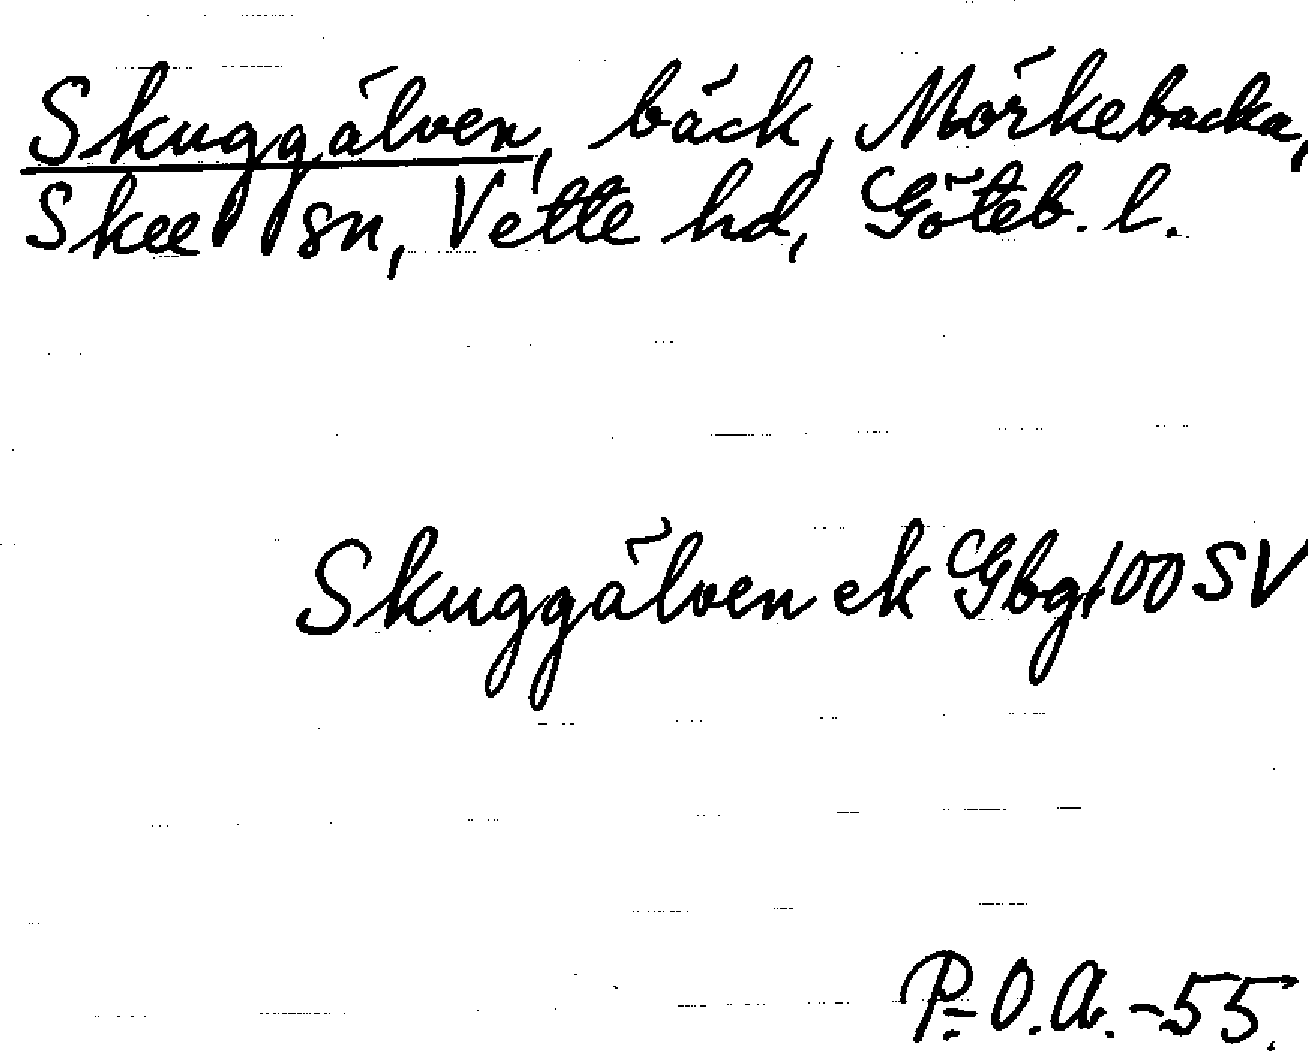 Skuggälven, bäck, Mörkebacka,
Skee sn, Vette hd, Göteb. l.
Skuggälven ek Gbg 100 SV
P.O.A. -55.